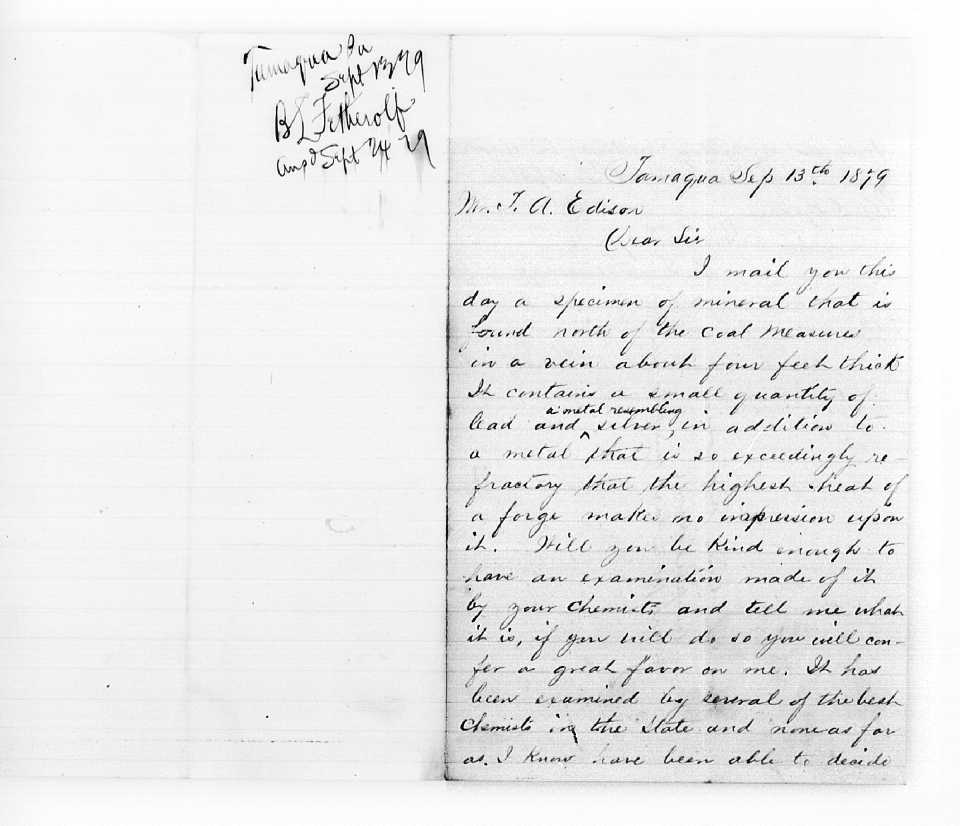 Tamaqua Pa
Sept 13 79
B L Fetherolf
Ansd Sept 24 79
Tamaqua Sep 13th 1879
Mr. T. A. Edison
Dear Sir
I mail you this
day a specimen of mineral that is
found north of the Coal Measures
in a vein about four feet thick
It contains a small quantity of
a metal resembling
lead and ^ silver, in addition to
a metal that is so exceedingly re-
fractory that the highest heat of
a forge makes no impression upon
it. Will you be kind enough to
have an examination made of it
by your Chemists and tell me what
it is, if you will do so you will con-
fer a great favor on me. It has
been examined by several of the best
Chemists in the State and none as far
as I know have been able to decide